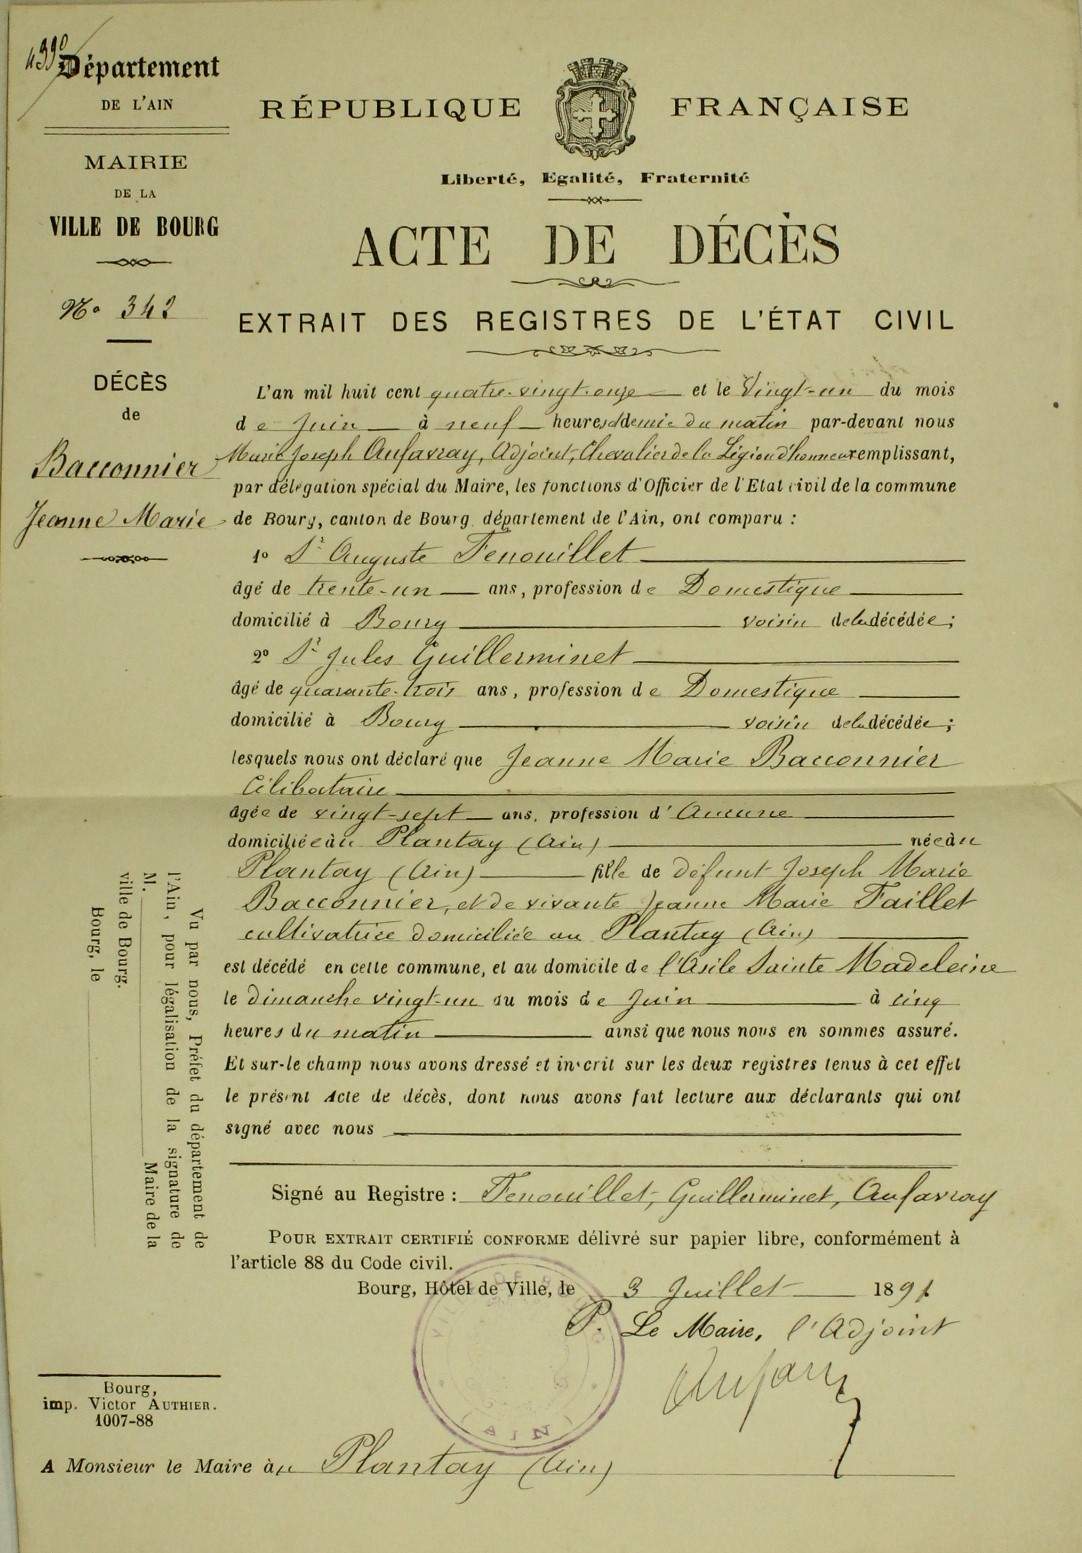 4390
Département
DE L'AIN
MAIRIE
DE LA
VILLE DE BOURG
No 342
DÉCÈS
de
Bacconnier
Jeanne Marie
RÉPUBLIQUE FRANÇAISE
Liberté, Egalité, Fraternité
ACTE DE DÉCÈS
EXTRAIT DES REGISTRES DE L'ÉTAT CIVIL
L'an mil huit cent quatre-vingt-onze et le Vingt-un du mois
de Juin à neuf heures & demie du matin par-devant nous
Marie Joseph Aufavray, Adjoint, Chevalier de la Légion d'honneur remplissant,
par délégation spécial du Maire, les fonctions d'Officier de l'Etat civil de la commune
de Bourg, canton de Bourg, département de l'Ain, ont comparu :
1o Sr Auguste Fenouillet
âgé de trente-un ans, profession de Domestique
domicilié à Bourg voisin de la décédée;
2o Sr Jules Guillerminet
âgé de quarante-trois ans, profession de Domestique
domicilié à Bourg voisin de la décédée;
lesquels nous ont déclaré que Jeanne Marie Bacconnier
Célibataire
âgée de vingt-sept ans, profession d'Aucune
domiciliée au Plantay (Ain) née au
Plantay (Ain) fille de défunt Joseph Marie
Bacconnier, et de vivante Jeanne Marie Faillet
cultivatrice domiciliée au Plantay (Ain)
est décédé en cette commune, et au domicile de l'Asile Sainte Madeleine
le dimanche vingt-un du mois de Juin à cinq
heures du matin ainsi que nous nous en sommes assuré.
Et sur-le champ nous avons dressé et inscrit sur les deux registres tenus à cet effet
le présent Acte de décès, dont nous avons fait lecture aux déclarants qui ont
signé avec nous
Vu par nous, Préfet du département de
l'Ain, pour légalisation de la signature de
M. Maire de la
ville de Bourg.
Bourg, le
Signé au Registre : Fenouillet, Guillerminet, Aufavray
POUR EXTRAIT CERTIFIÉ CONFORME délivré sur papier libre, conformément à
l'article 88 du Code civil.
Bourg, Hôtel de Ville, le 3 Juillet 1891
P. Le Maire, l'Adjoint
VILLE DE BOURG
(AIN)
Bourg,
imp. Victor AUTHIER.
1007-88
A Monsieur le Maire du Plantay (Ain)